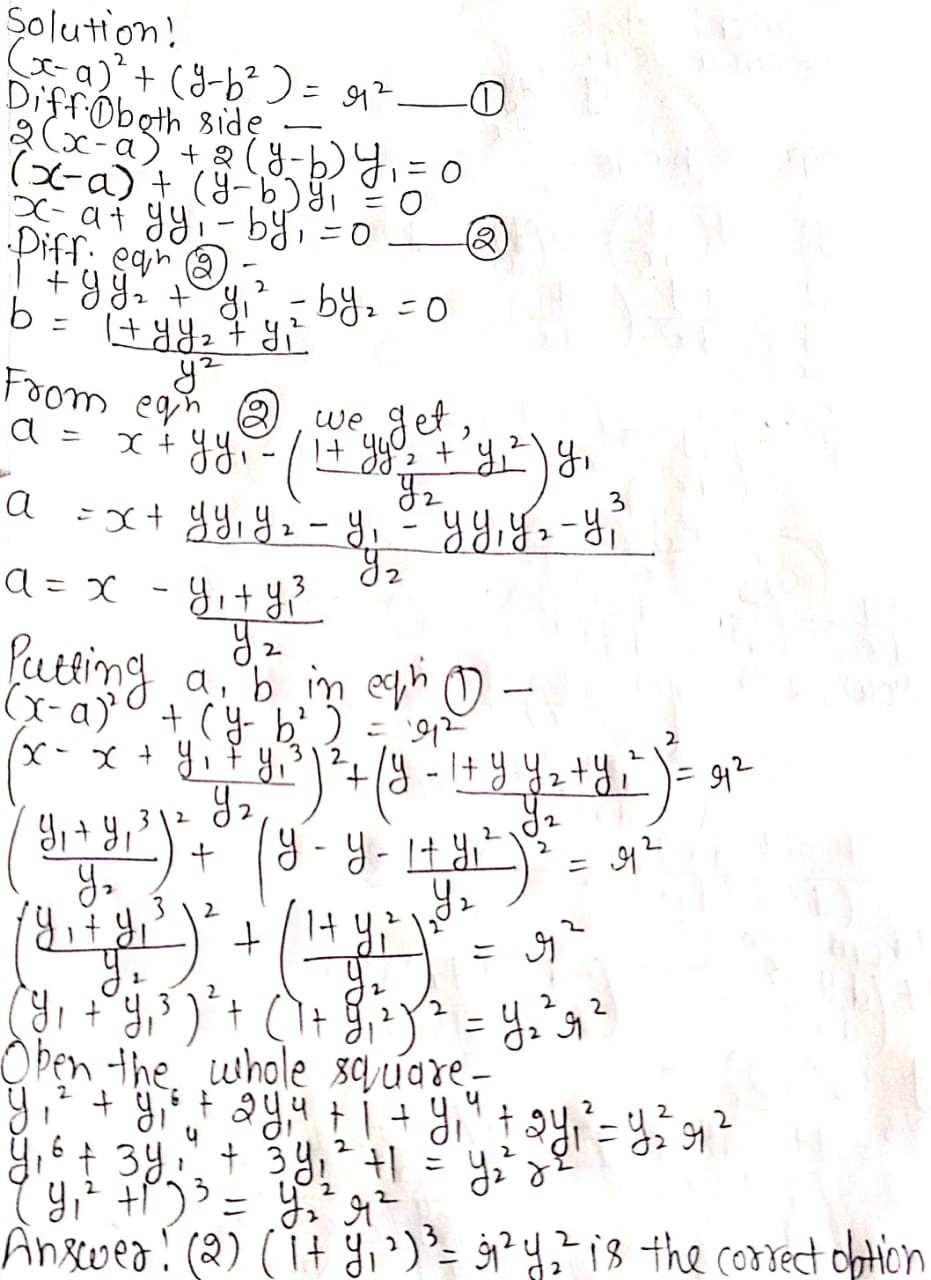 Solution!
(x-a)² + (y-b²) = r² —— ①
Diff. ① both side —
2(x-a) + 2(y-b)y₁ = 0
(x-a) + (y-b)y₁ = 0
x-a+yy₁-by₁ = 0 —— ②
Diff. eqn ② -
1 + yy₂ + y₁² - by₂ = 0
b = (1+yy₂+y₁²)/y²
From eqn ② we get,
a = x + yy₁ - ((1+yy₂+y₁²)/y₂) y₁
a = x + (yy₁y₂ - y₁ - yy₁y₂ - y₁³)/y₂
a = x - (y₁+y₁³)/y₂
Putting a, b in eqn ① -
(x-a)² + (y-b²) = r²
(x-x+(y₁+y₁³)/y₂)² + (y-(1+yy₂+y₁²)/y₂)² = r²
((y₁+y₁³)/y₂)² + (y-y-(1+y₁²)/y₂)² = r²
((y₁+y₁³)/y₂)² + ((1+y₁²)/y₂)² = r²
(y₁+y₁³)² + (1+y₁²)² = y₂²r²
Open the whole square-
y₁² + y₁⁶ + 2y₁⁴ + 1 + y₁⁴ + 2y₁² = y₂²r²
y₁⁶ + 3y₁⁴ + 3y₁² + 1 = y₂²r²
(y₁²+1)³ = y₂²r²
Answer! (2) (1+y₁²)³ = r²y₂² is the correct obtion